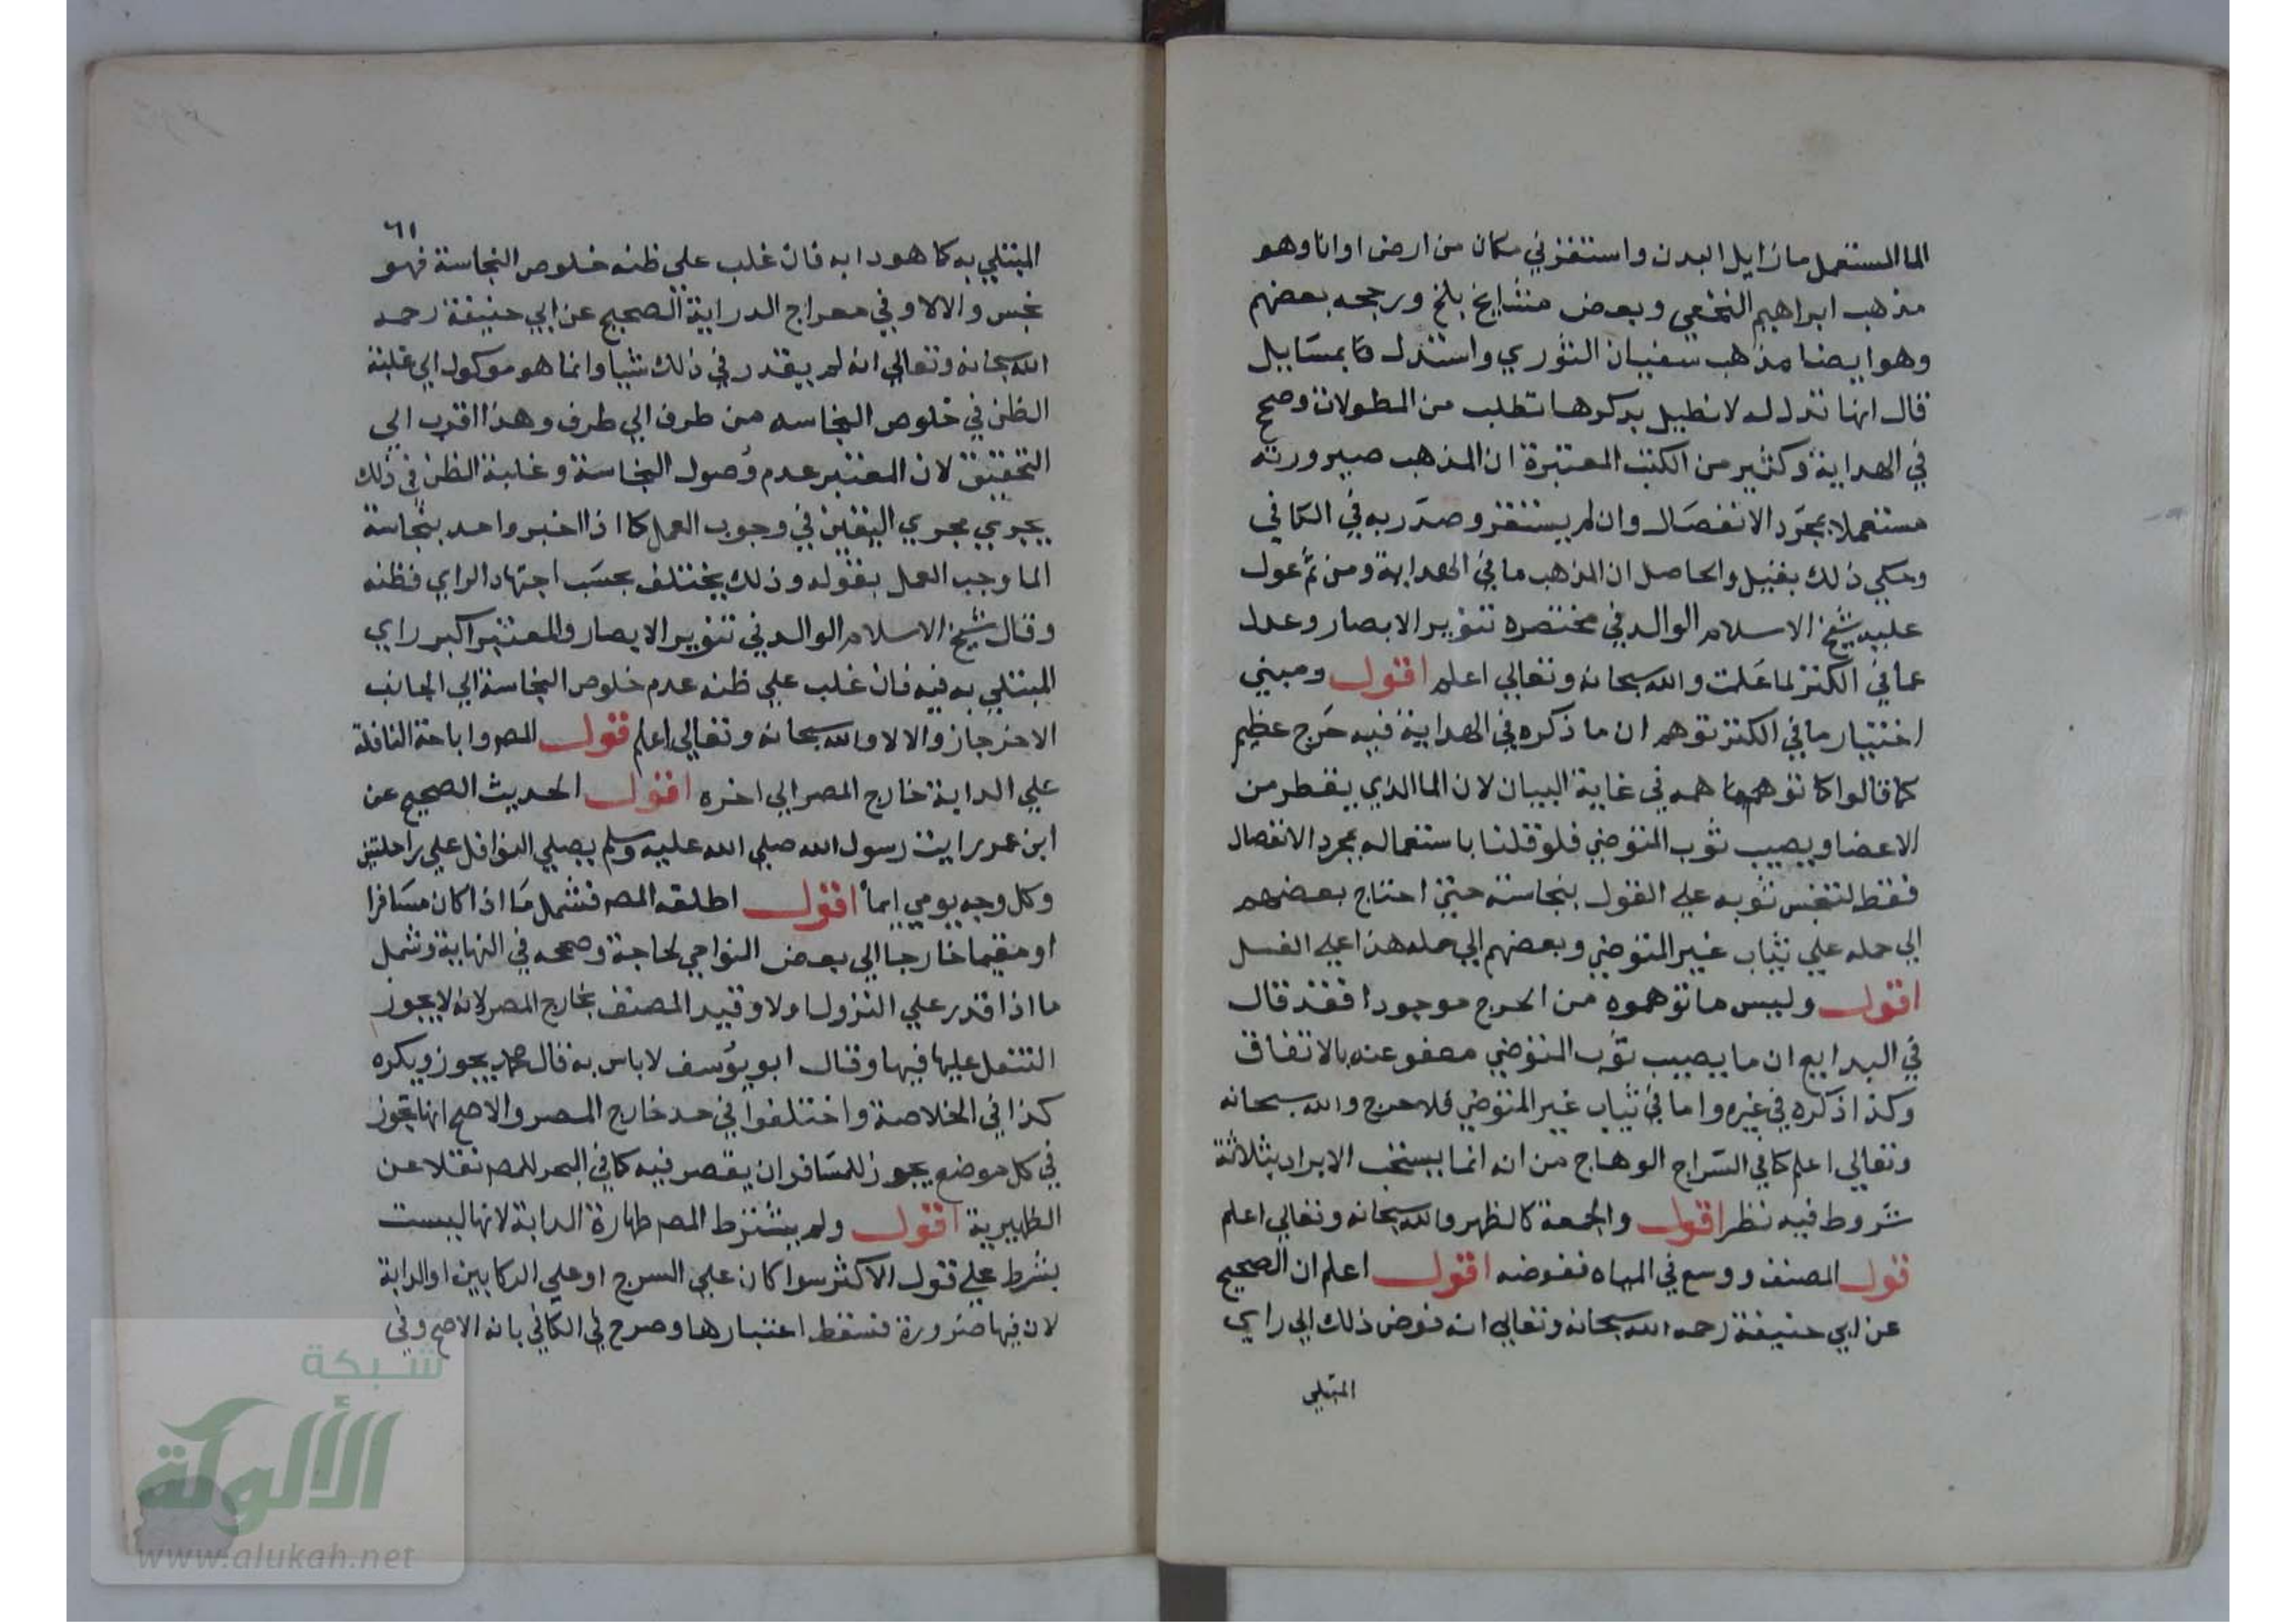 الماالمستعمل مازايل البدن واستقر في مكان من ارض اواناوهو
مذهب ابراهيم النخعي وبعض مشايخ بلخ ورجحه بعضهم
وهوايضا مذهب سفيان الثوري واستدل بمسايل
قال انها تدل له لانطيل بذكرها تطلب من المطولات وصحح
في الهداية وكثير من الكتب المعتبرة ان المذهب صيرورته
مستعملا بمجرد الانفصال وان لم يستقر وصدر به في الكافي
وحكي ذلك بقيل والحاصل ان المذهب ما في الهداية ومن ثم عول
عليه شيخ الاسلام الوالد في مختصره تنوير الابصار وعدل
عما في الكنز لما علمت والله سبحانه وتعالي اعلم اقول ومبني
اختيار ما في الكنز توهم ان ما ذكره في الهداية فيه حرج عظيم
كما قالوا في غاية البيان لان الماالذي يقطر من
الاعضاو يصيب ثوب المتوضي فلو قلنا باستعماله بمجرد الانفصال
فقط لتنجس ثوبه علي القول بنجاسته حتي احتاج بعضهم
الي حمله علي ثياب غير المتوضي وبعضهم الي حمله هذا علي الغسل
اقول وليس ما توهموه من الحرج موجودا فقد قال
في البدايع ان ما يصيب ثوب المتوضي معفو عنه بالاتفاق
وكذا ذكره في غيره واما في ثياب غير المتوضي فلا حرج والله سبحانه
وتعالي اعلم كما في السراج الوهاج من انه انما يستحب الابراد بثلاثة
شروط فيه نظر اقول والجمعة كالظهر والله سبحانه وتعالي اعلم
قول المصنف ووسع في المياه نفوضه اقول اعلم ان الصحيح
عن ابي حنيفة رحمه الله سبحانه وتعالي انه فوض ذلك الي راي
المبتلي
٦١
المبتلي به كما هو دابه فان غلب علي ظنه خلوص النجاسة فهو
نجس والالا وفي معراج الدراية الصحيح عن ابي حنيفة رحمه
الله سبحانه وتعالي انه لم يقدر في ذلك شيا وانما هو موكول الي غلبة
الظن في خلوص النجاسه من طرف الي طرف وهذا اقرب الي
التحقيق لان المعتبر عدم وصول النجاسة وغلبة الظن في ذلك
يجري مجري اليقين في وجوب العمل كما اذا اخبر واحد بنجاسة
الما وجب العمل بقوله وذلك يختلف بحسب اجتهاد الراي وظنه
وقال شيخ الاسلام الوالد في تنوير الابصار والمعتبر اكبر راي
المبتلي به فيه فان غلب علي ظنه عدم خلوص النجاسة الي الجانب
الاخر جاز والالا والله سبحانه وتعالي اعلم قول المصر واباحة النافلة
علي الدابة خارج المصر الي اخره اقول الحديث الصحيح عن
ابن عمر رايت رسول الله صلي الله عليه وسلم يصلي النوافل علي راحلته
وكل وجه يومي ايما اقول اطلقه المصر فشمل ما اذا كان مسافرا
او مقيما خارجا الي بعض النواحي لحاجة وصححه في النهاية وشمل
ما اذا قدر علي النزول اولا وقيد المصنف بخارج المصر لانه لا يجوز
التنفل عليها فيها وقال ابو يوسف لا باس به قال محمد يجوز ويكره
كذا في الخلاصة واختلفوا في حد خارج المصر والاصح انها تجوز
في كل موضع يجوز للمسافر ان يقصر فيه كما في البحر للمصر نقلا عن
الظهيرية اقول ولم يشترط المصر طهارة الدابة لانها ليست
بشرط علي قول الاكثر سوا كان علي السرج او علي الركابين او الدابة
لان فيها ضرورة فسقط اعتبارها وصرح في الكافي بانه الاصح وفي
شبكة
الألوكة
www.alukah.net